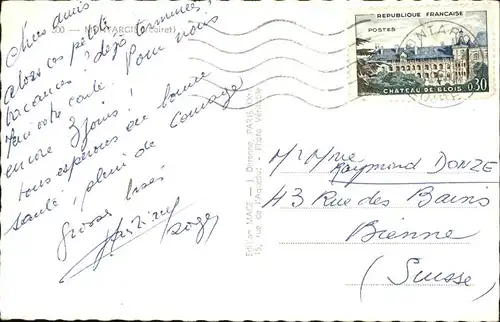 Chers amis
300 — MONTARGIS (Loiret)
Alors ces petites
vacances? déjà terminées!
J'ai votre carte. Pour nous
encore 3 jours!
tous espérons en bonne
santé, plein de courage
grosses bises
Roger
Edition MAGE - J. Derenne, PARIS XX
15, rue de l'Aqueduc - Photo Véritable
REPUBLIQUE FRANÇAISE
POSTES
CHATEAU DE BLOIS
0,30
MONTARGIS
Mr Mme
Raymond DONZE
43 Rue des Bains
Bienne
(Suisse)